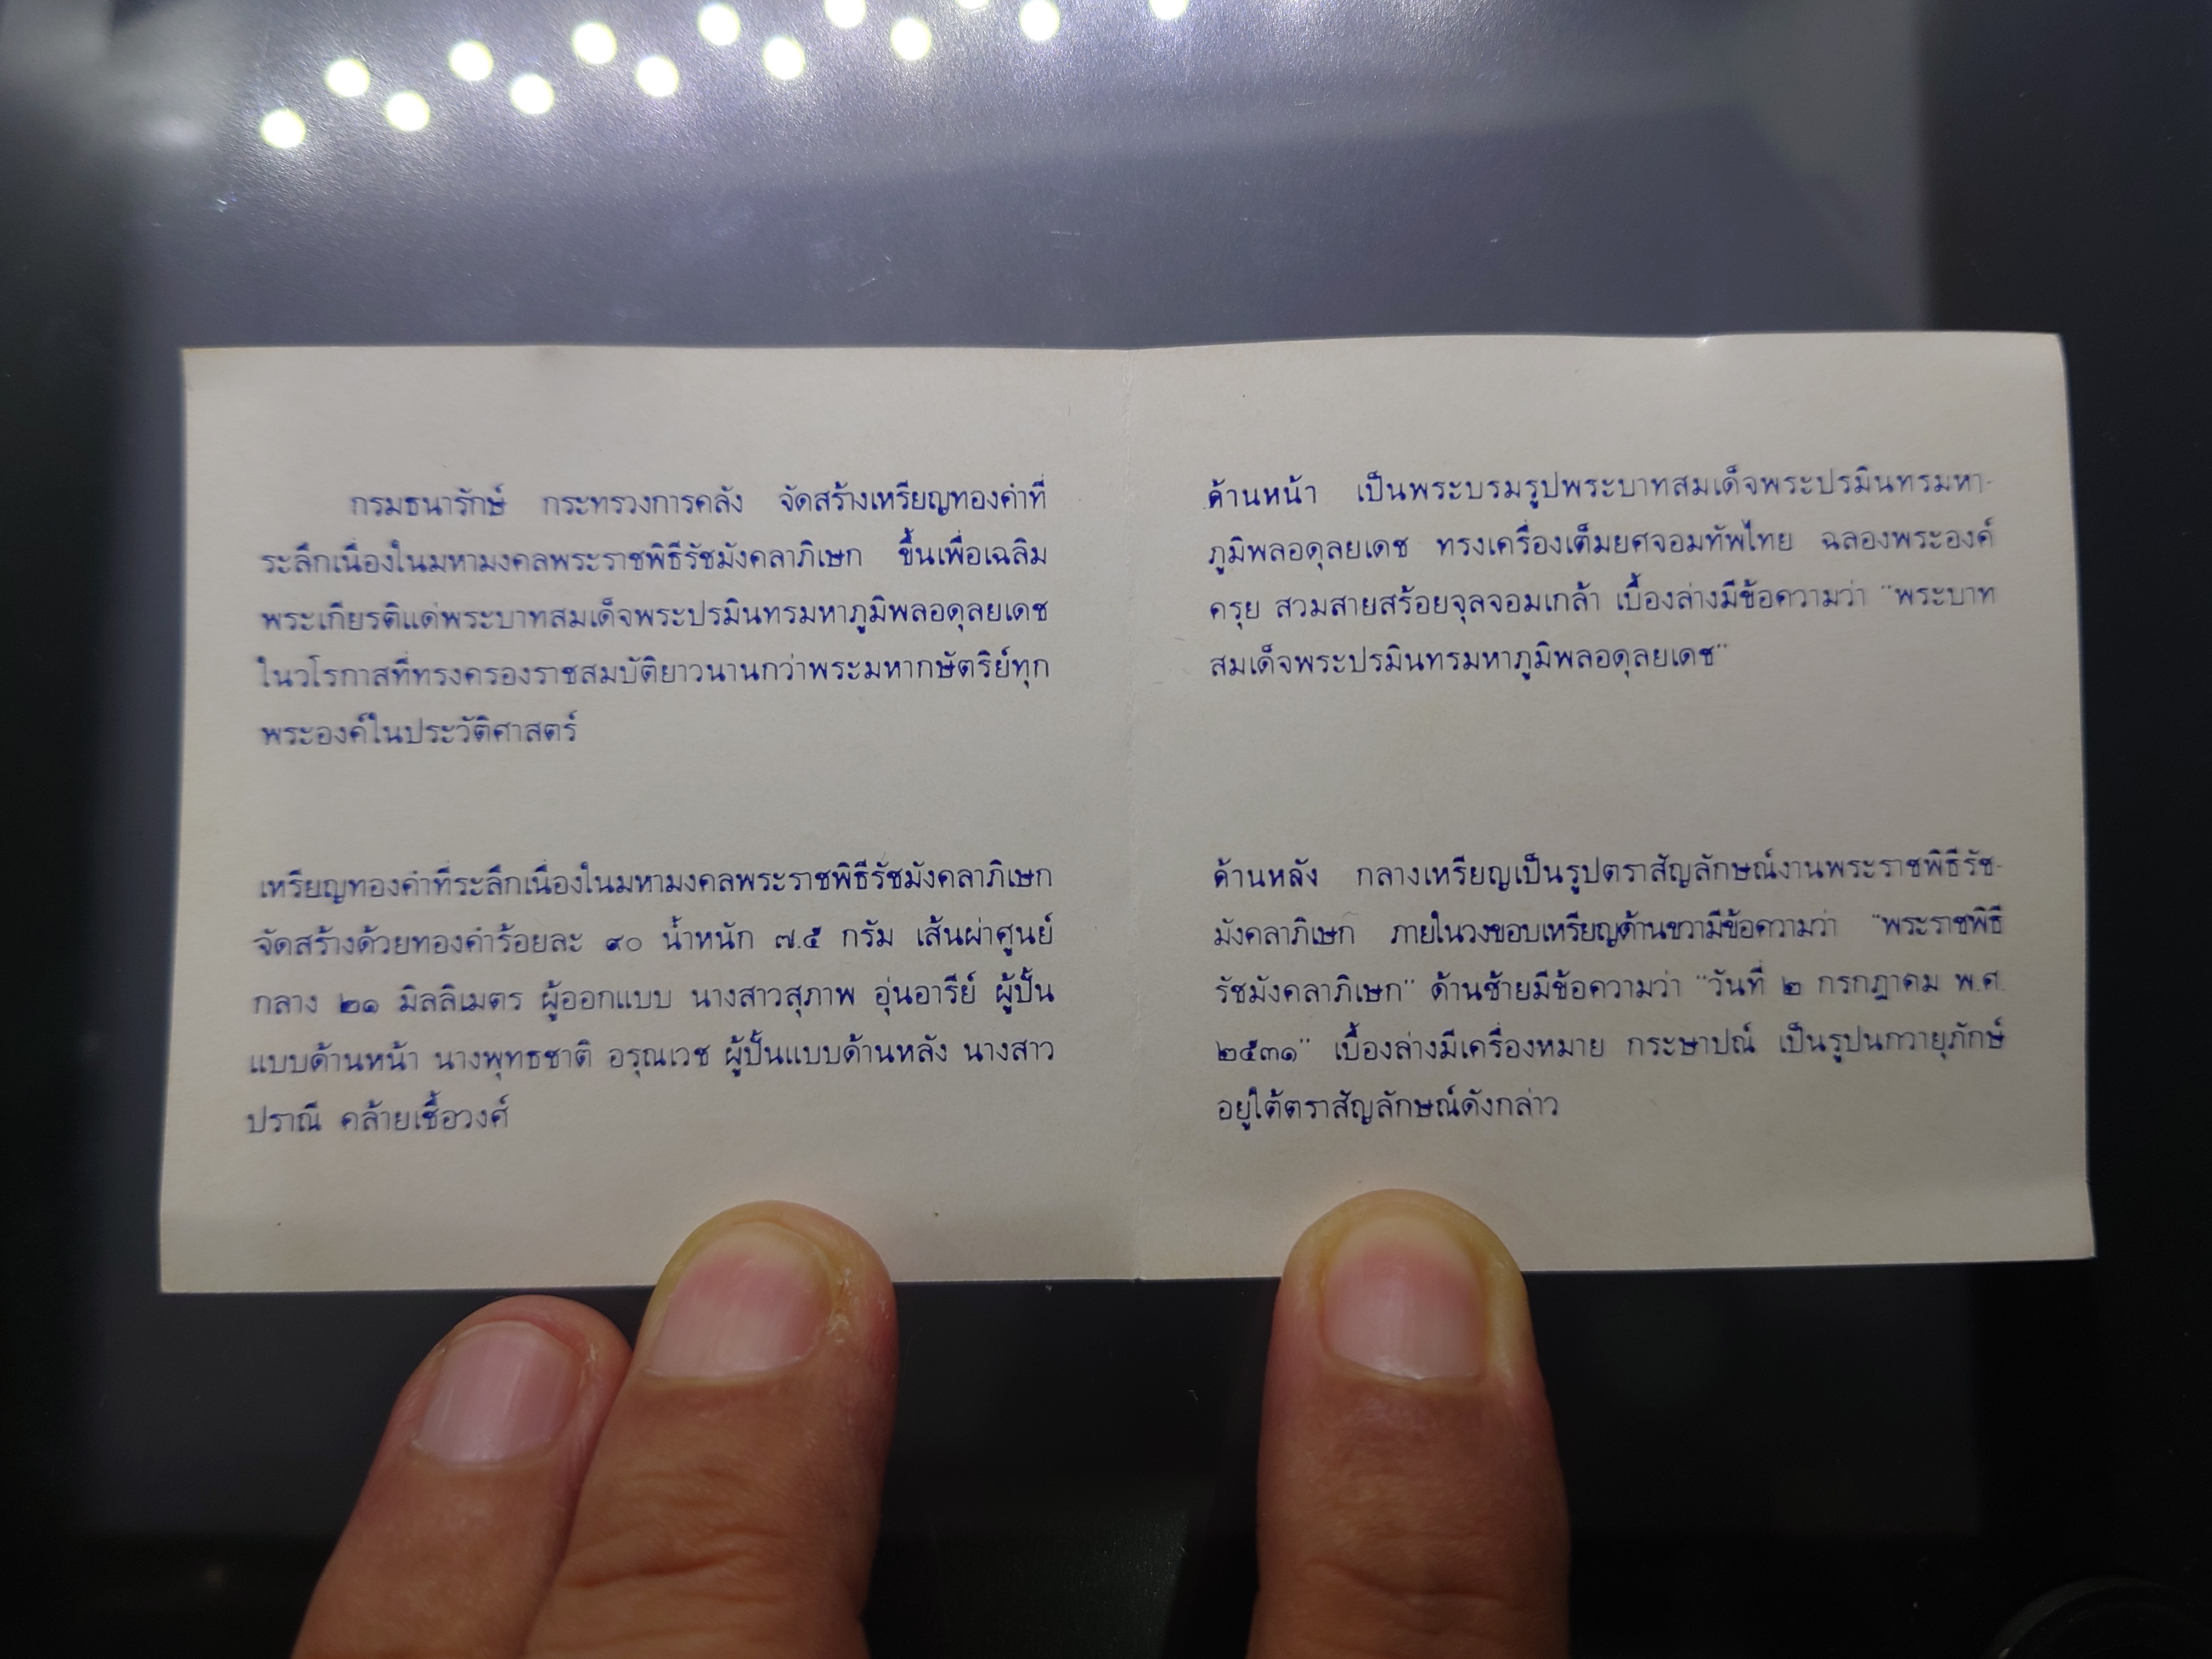 กรมธนารักษ์ กระทรวงการคลัง จัดสร้างเหรียญทองคำที่
ระลึกเนื่องในมหามงคลพระราชพิธีรัชมังคลาภิเษก ขึ้นเพื่อเฉลิม
พระเกียรติแด่พระบาทสมเด็จพระปรมินทรมหาภูมิพลอดุลยเดช
ในวโรกาสที่ทรงครองราชสมบัติยาวนานกว่าพระมหากษัตริย์ทุก
พระองค์ในประวัติศาสตร์
เหรียญทองคำที่ระลึกเนื่องในมหามงคลพระราชพิธีรัชมังคลาภิเษก
จัดสร้างด้วยทองคำร้อยละ ๙๐ น้ำหนัก ๗.๕ กรัม เส้นผ่าศูนย์
กลาง ๒๑ มิลลิเมตร ผู้ออกแบบ นางสาวสุภาพ อุ่นอารีย์ ผู้ปั้น
แบบด้านหน้า นางพุทธชาติ อรุณเวช ผู้ปั้นแบบด้านหลัง นางสาว
ปราณี คล้ายเชื้อวงศ์
ด้านหน้า เป็นพระบรมรูปพระบาทสมเด็จพระปรมินทรมหา-
ภูมิพลอดุลยเดช ทรงเครื่องเต็มยศจอมทัพไทย ฉลองพระองค์
ครุย สวมสายสร้อยจุลจอมเกล้า เบื้องล่างมีข้อความว่า "พระบาท
สมเด็จพระปรมินทรมหาภูมิพลอดุลยเดช"
ด้านหลัง กลางเหรียญเป็นรูปตราสัญลักษณ์งานพระราชพิธีรัช-
มังคลาภิเษก ภายในวงขอบเหรียญด้านขวามีข้อความว่า "พระราชพิธี
รัชมังคลาภิเษก" ด้านซ้ายมีข้อความว่า "วันที่ ๒ กรกฎาคม พ.ศ.
๒๕๓๑" เบื้องล่างมีเครื่องหมาย กระษาปณ์ เป็นรูปนกวายุภักษ์
อยู่ใต้ตราสัญลักษณ์ดังกล่าว